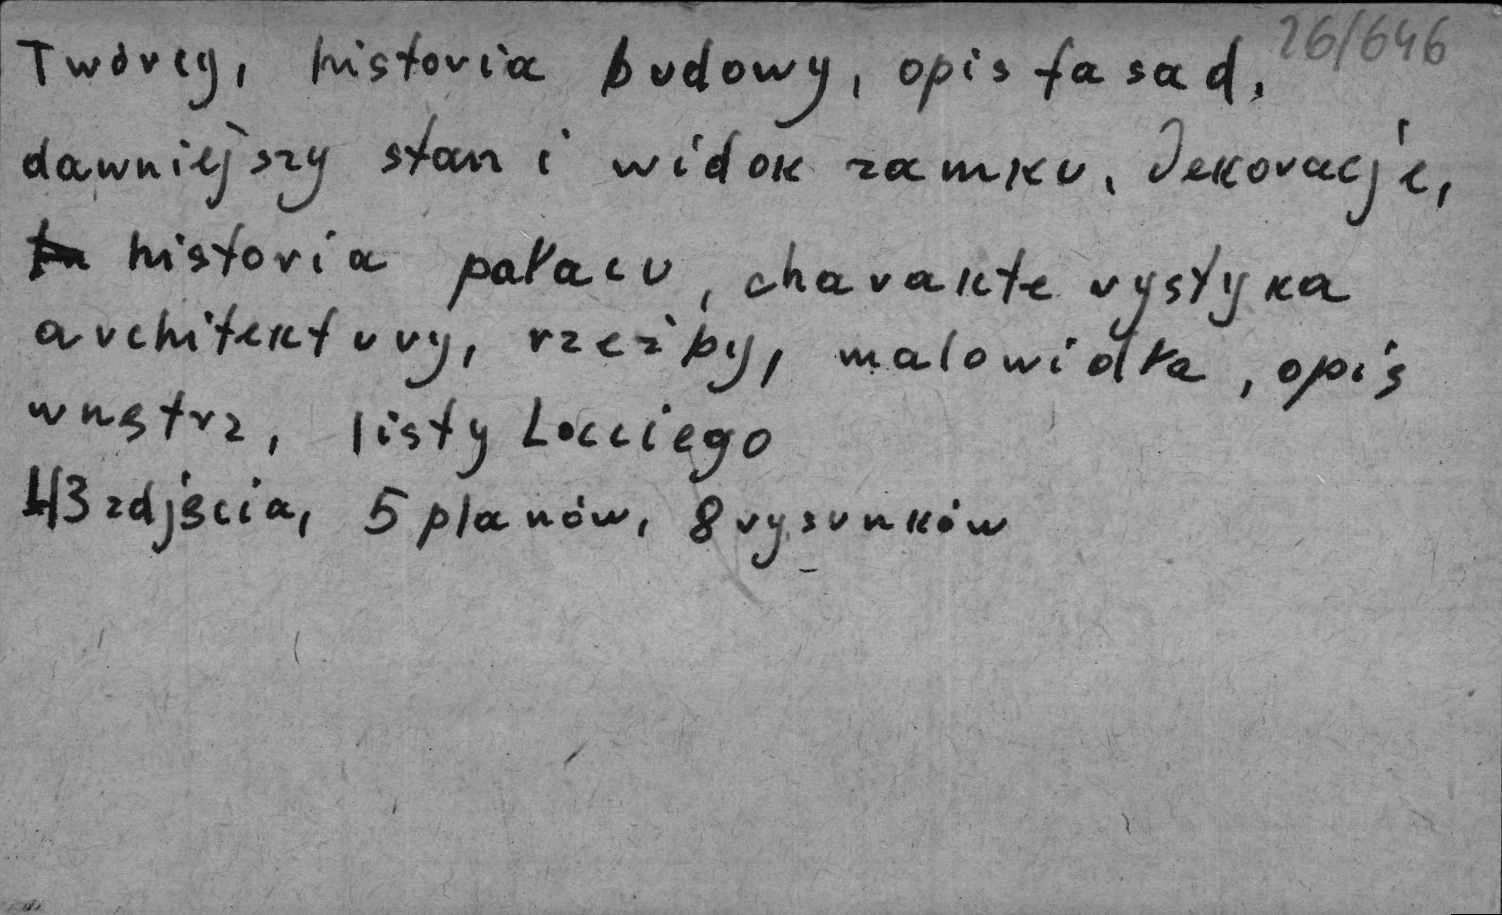 26/646
Twórcy, historia budowy, opis fasad,
dawniejszy stan i widok zamku. Dekoracje,
historia pałacu, charakterystyka
architektury, rzeźby, malowidła, opis
wnętrz, listy Locciego
43 zdjęcia, 5 planów, 8 rysunków